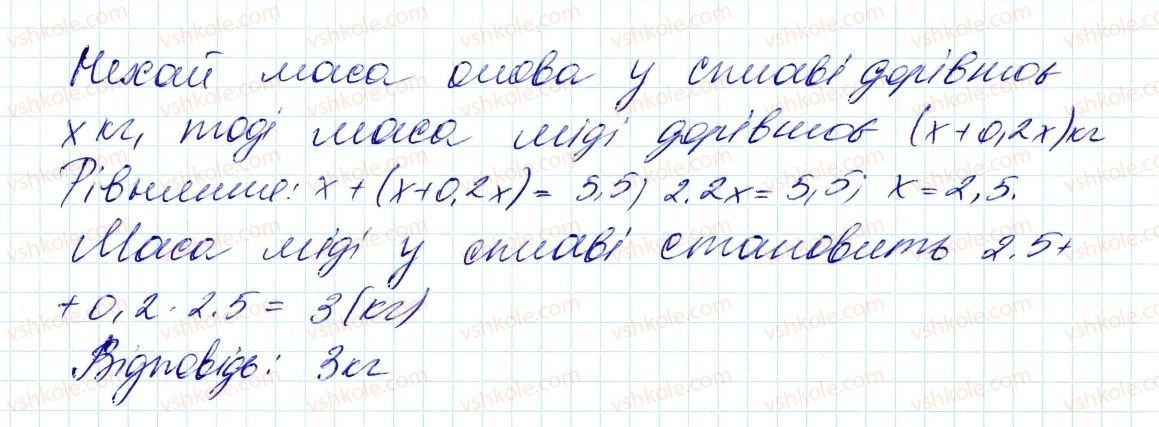 Нехай маса олова у сплаві дорівнює
x кг, тоді маса міді дорівнює (x+0,2x)кг
Рівняння: x+(x+0,2x)= 5,5; 2.2x=5,5; x=2,5.
Маса міді у сплаві становить 2.5+
+0,2·2.5= 3(кг)
Відповідь: 3кг